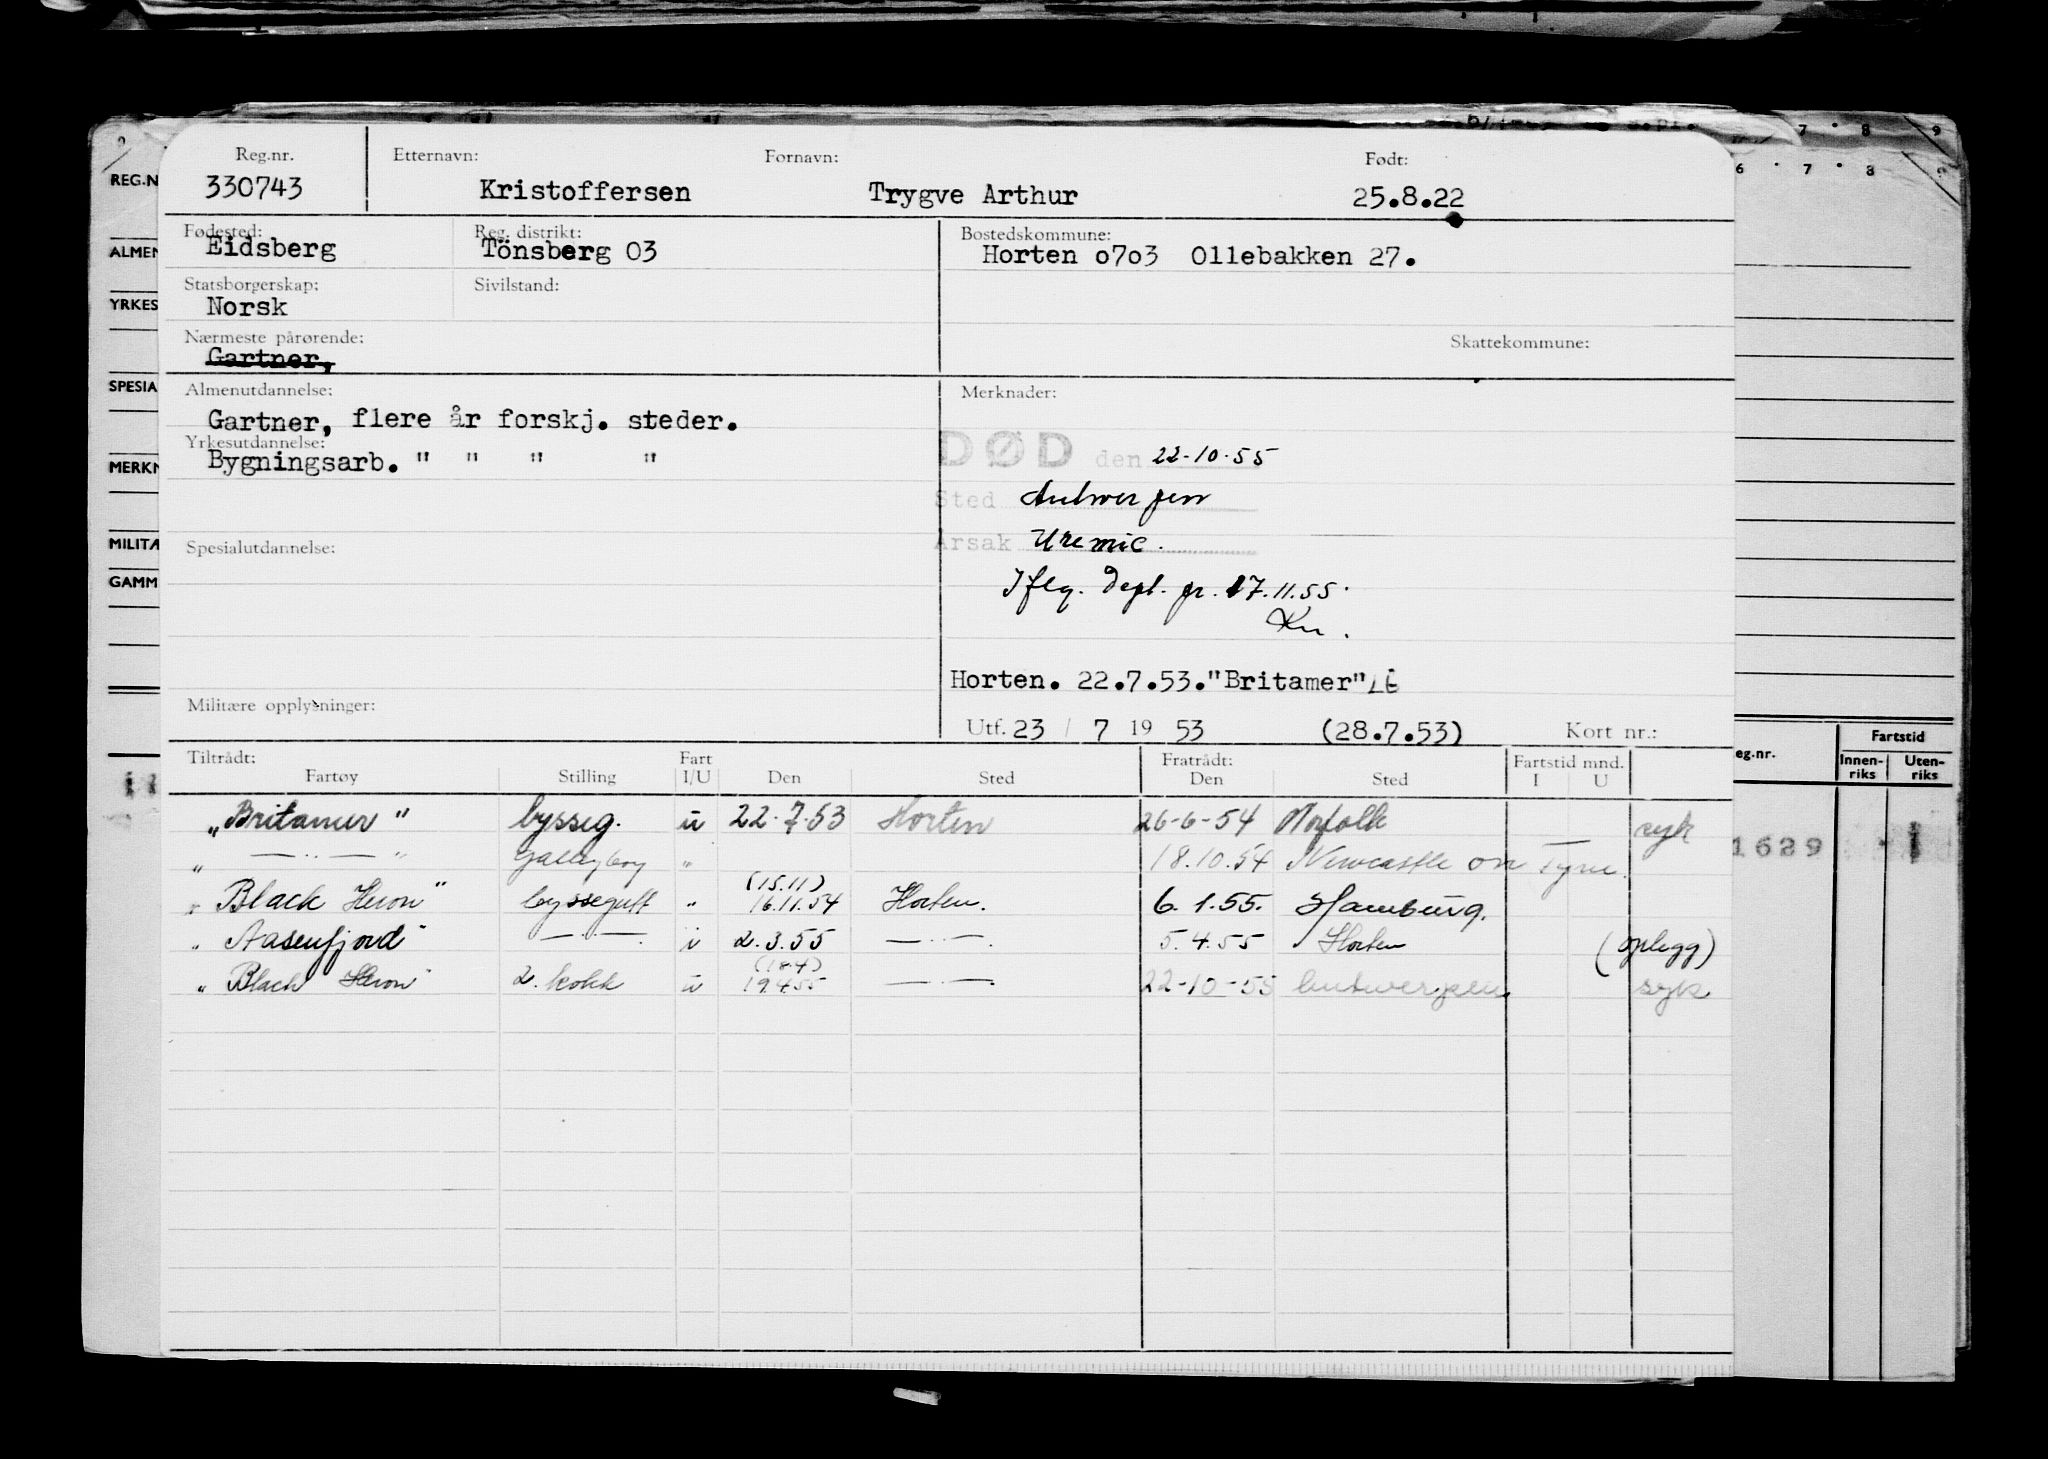 Reg.nr. Etternavn: Fornavn: Født:
330743 Kristoffersen Trygve Arthur 25.8.22
Fødested: Reg. distrikt: Bostedskommune:
Eidsberg Tönsberg 03 Horten o7o3 Ollebakken 27.
Statsborgerskap: Sivilstand:
Norsk
Nærmeste pårørende: Skattekommune:
Gartner,
Almenutdannelse: Merknader:
Gartner, flere år forskj. steder.
Yrkesutdannelse:
Bygningsarb. " " " "
DØD den 22-10-55
Sted Antwerpen
Årsak Uremie.
Iflg. Dept. pr. 17.11.55.
Kn.
Spesialutdannelse:
Horten. 22.7.53."Britamer" LE
Militære opplysninger:
Utf. 23 / 7 19 53 (28.7.53) Kort nr.:
Tiltrådt: Fart Fratrådt: Fartstid mnd.
Fartøy Stilling I/U Den Sted Den Sted I U
"Britamer" bysseg. u 22.7.53 Horten 26-6-54 Norfolk syk
" — " — " Galleyboy " 18.10.54 Newcastle on Tyne.
(15.11)
" Black Heron" byssegutt " 16.11.54 Horten. 6.1.55. Hamburg.
" Aasenfjord" — " —. u 2.3.55 — " —. 5.4.55 Horten (oplegg)
(18.4)
" Black Heron" 2. kokk u 19.4.55 — " — 22-10-55 Antwerpen syk
REG.N
ALMEN
YRKES
SPESIA
MERKN
MILITÆ
GAMM
7 8 9
6 7 8 9
eg.nr. Fartstid
Innen-riks Uten-riks
1629